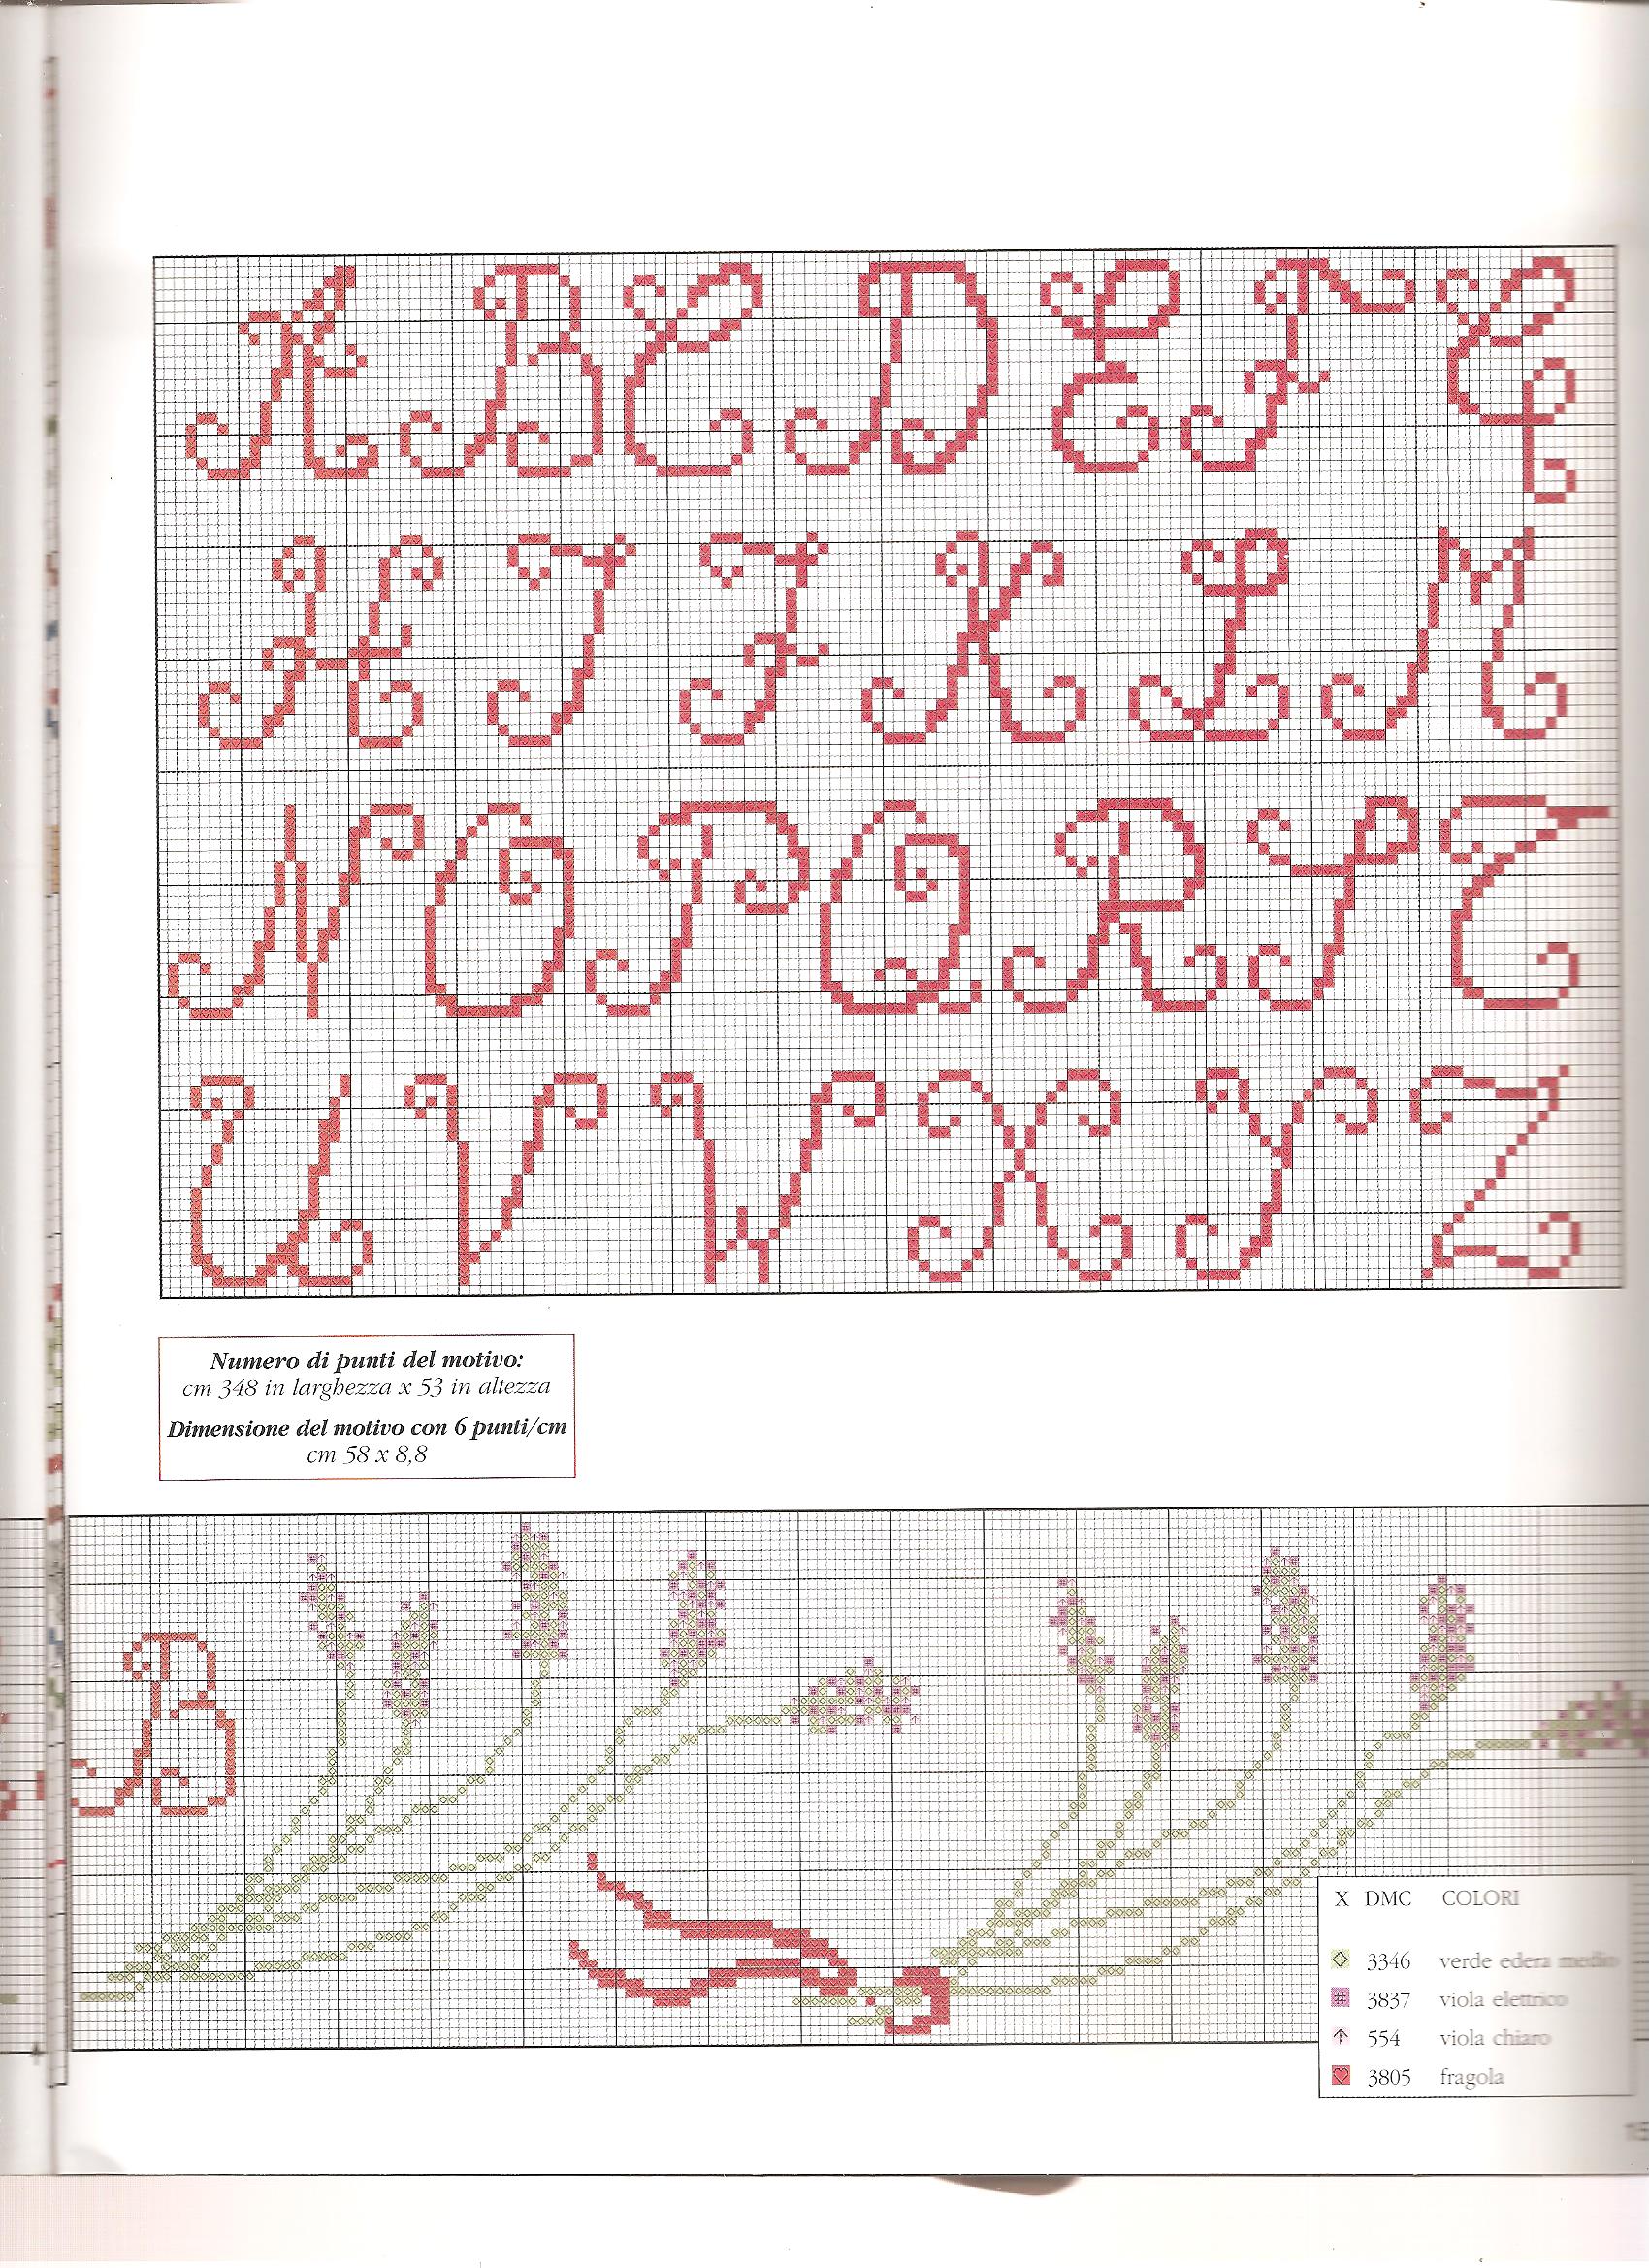 A B C D E F G
H I J K L M
N O P Q R S T
U V W X Y Z
Numero di punti del motivo:
cm 348 in larghezza x 53 in altezza
Dimensione del motivo con 6 punti/cm
cm 58 x 8,8
B
X DMC COLORI
3346 verde edera medio
3837 viola elettrico
554 viola chiaro
3805 fragola